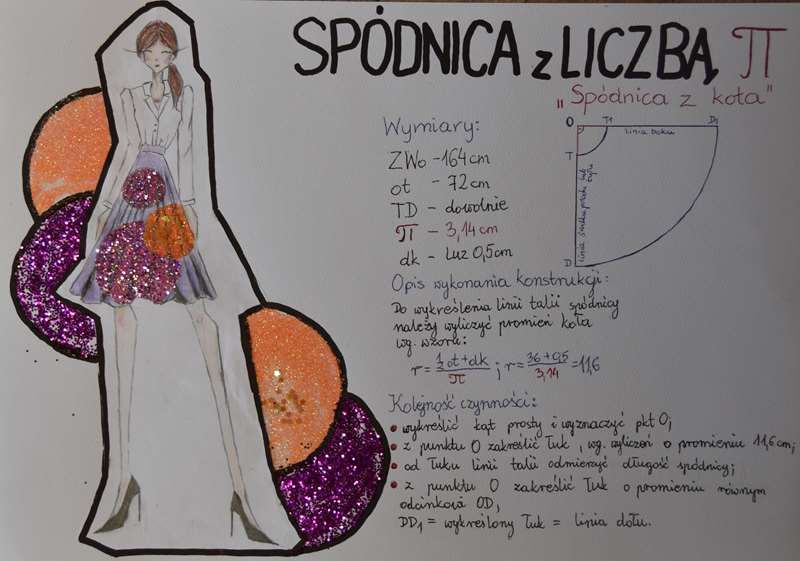 SPÓDNICA z LICZBĄ π
"Spódnica z koła"
Wymiary:
ZWo - 164 cm
ot - 72 cm
TD - dowolnie
π - 3,14 cm
dk - luz 0,5 cm
O T1 linia boku D1
T
linia środka przodu lub tyłu
D
Opis wykonania konstrukcji:
Do wykreślenia linii talii spódnicy
należy wyliczyć promień koła
wg. wzoru:
r = (½ot + dk)/π ; r = (36 + 0,5)/3,14 = 11,6
Kolejność czynności:
• wykreślić kąt prosty i wyznaczyć pkt O;
• z punktu O zakreślić łuk, wg. wyliczeń o promieniu 11,6 cm;
• od łuku linii talii odmierzyć długość spódnicy;
• z punktu O zakreślić łuk o promieniu równym
odcinkowi OD,
DD1 = wykreślony łuk = linia dołu.